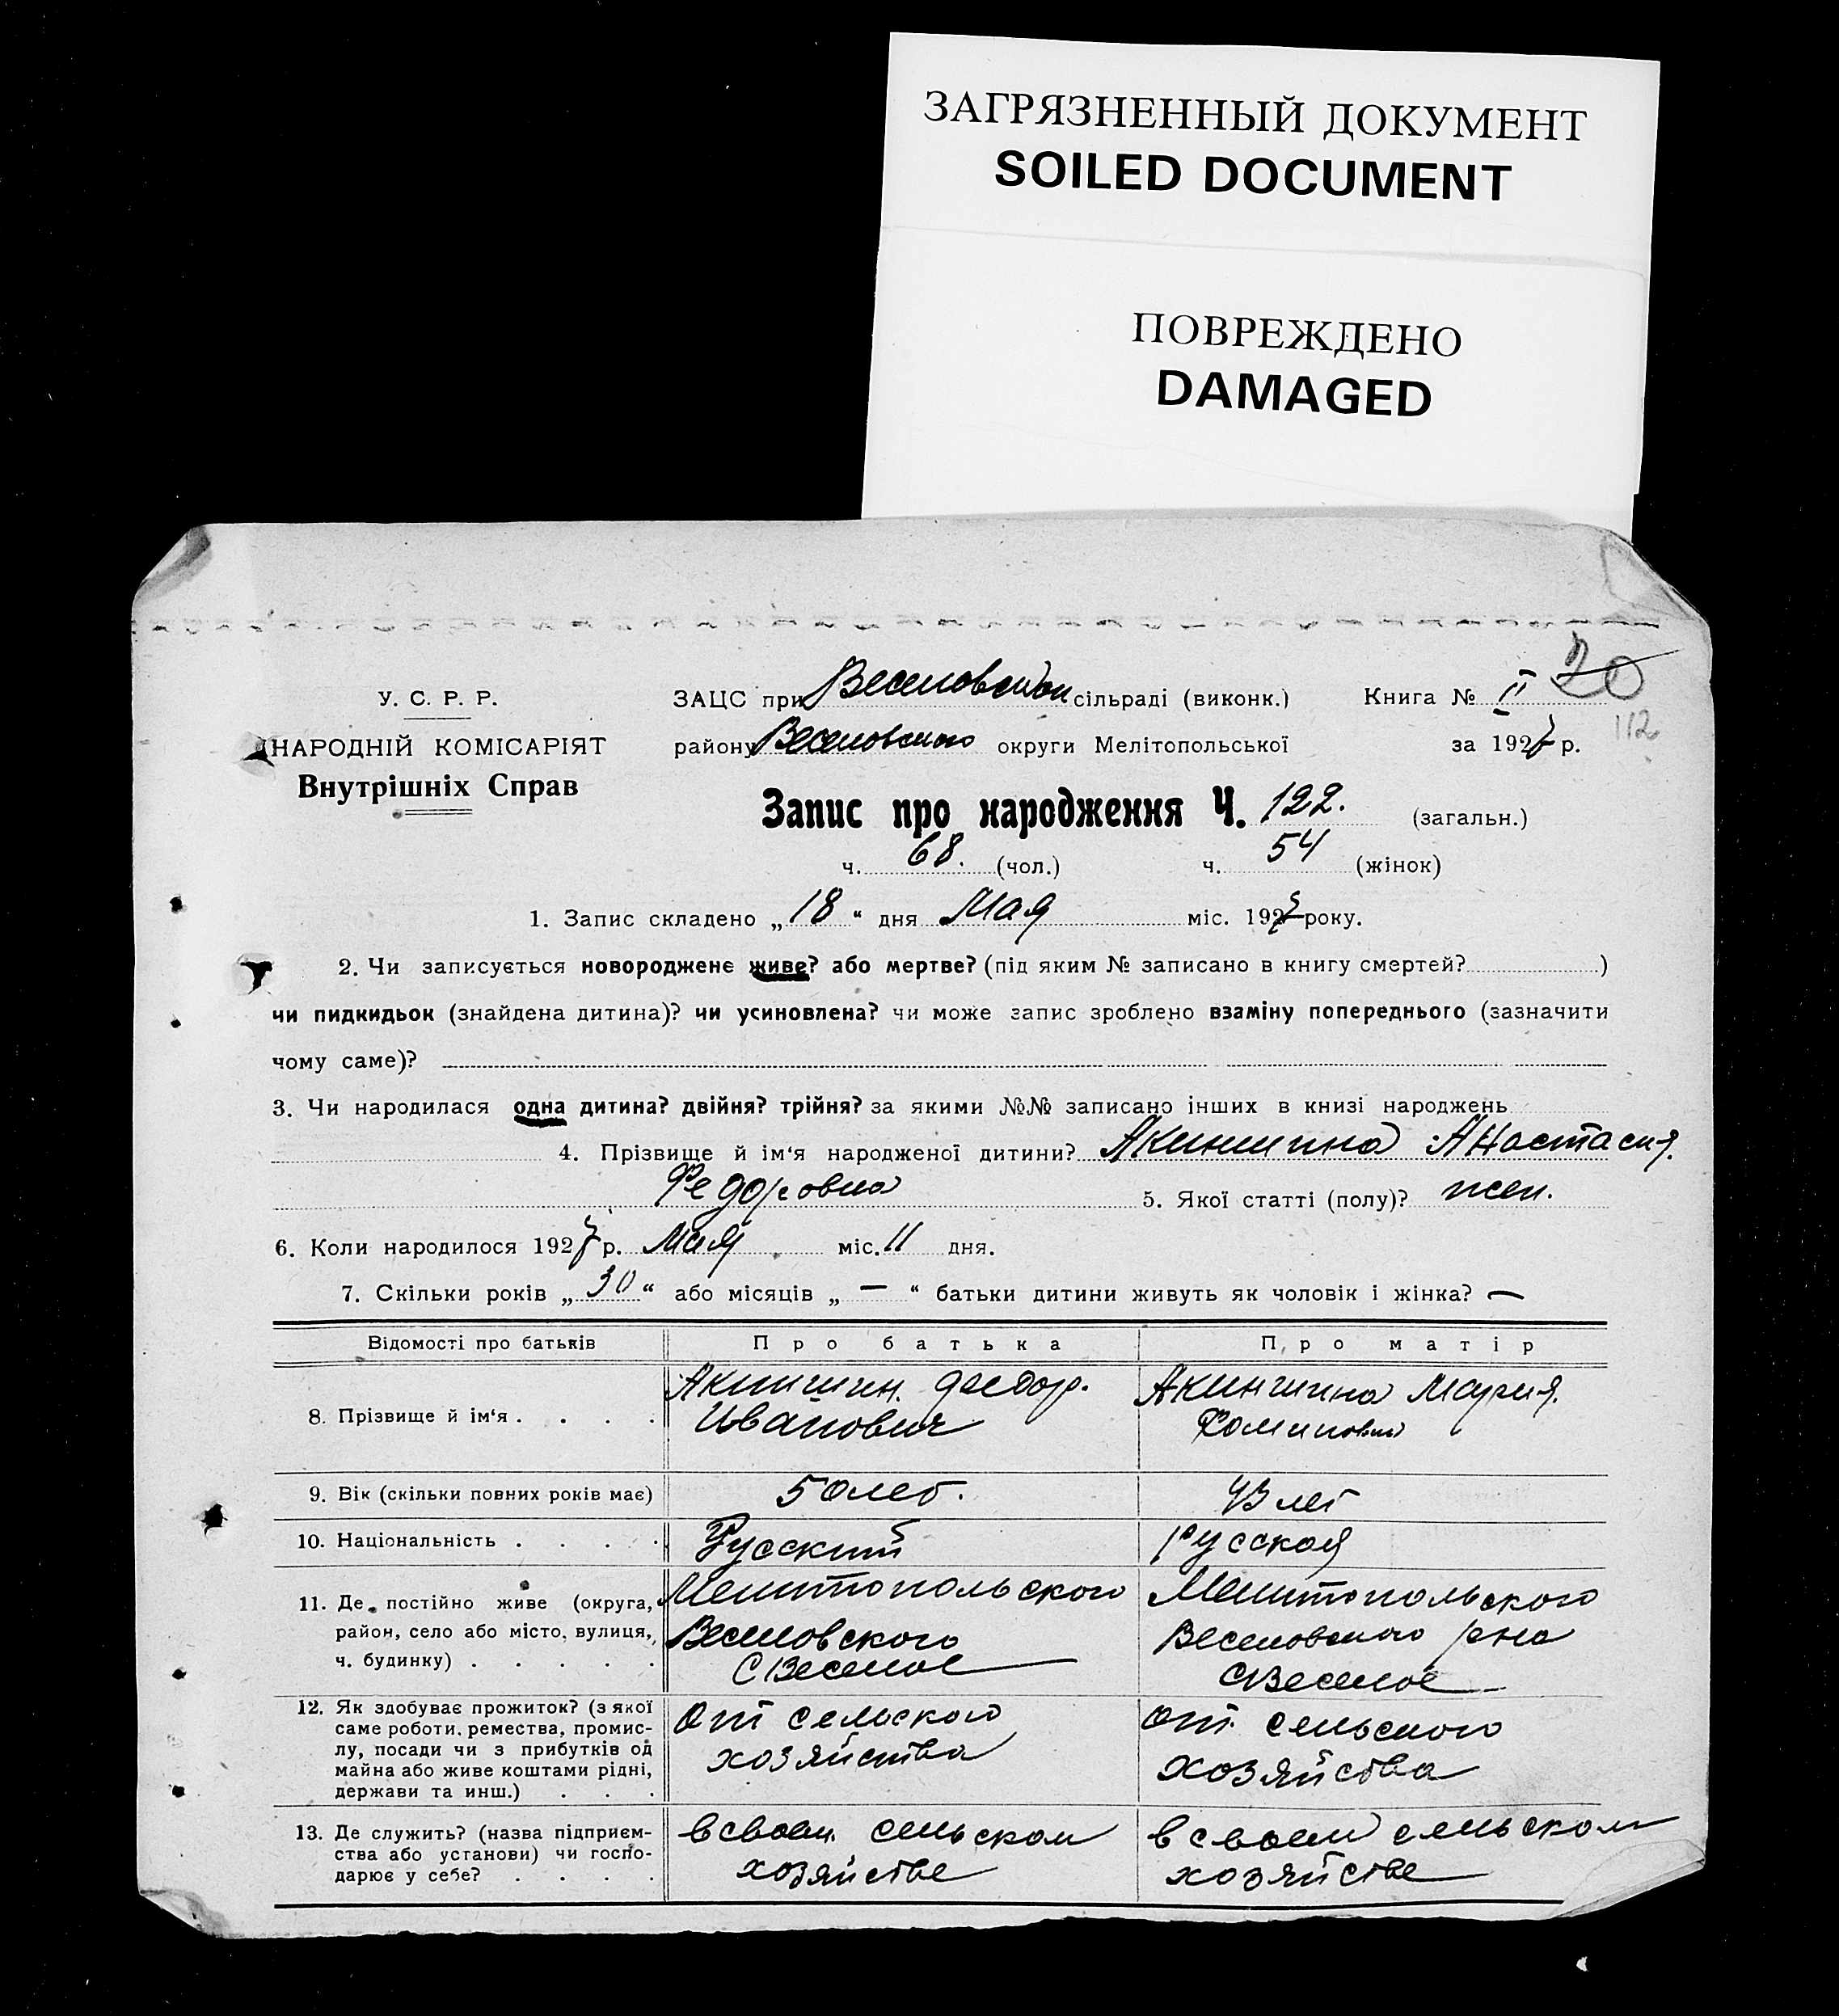 ЗАГРЯЗНЕННЫЙ ДОКУМЕНТ
SOILED DOCUMENT
ПОВРЕЖДЕНО
DAMAGED
20
112
У. С. Р. Р.
НАРОДНІЙ КОМІСАРІЯТ
Внутрішніх Справ
ЗАЦС при Веселовском сільраді (виконк.) Книга № II
району Веселовского округи Мелітопольської за 1927 р.
Запис про народження Ч. 122. (загальн.)
ч. 68. (чол.) ч. 54 (жінок)
1. Запис складено „18“ дня Мая міс. 1927 року.
2. Чи записується новороджене живе? або мертве? (під яким № записано в книгу смертей? )
чи пидкидьок (знайдена дитина)? чи усиновлена? чи може запис зроблено взаміну попереднього (зазначити
чому саме)?
3. Чи народилася одна дитина? двійня? трійня? за якими №№ записано інших в книзі народжень
4. Прізвище й ім‘я народженої дитини? Акиншина Анастасия.
Федоровна 5. Якої статті (полу)? жен.
6. Коли народилося 1927 р. Мая міс. 11 дня.
7. Скільки років „30“ або місяців „ — “ батьки дитини живуть як чоловік і жінка? —
Відомості про батьків Про батька Про матір
8. Прізвище й ім‘я . . . .
Акиншин. Федор.
Иванович
Акиншина Мария.
Фоминовна
9. Вік (скільки повних років має) 50 лет. 43 лет
10. Національність . . . . Русский Русская
11. Де постійно живе (округа,
район, село або місто, вулиця,
ч. будинку) . . . . .
Мелитопольского
Веселовского
С Веселое
Мелитопольского
Веселовского р-на
С Веселое
12. Як здобуває прожиток? (з якої
саме роботи, ремества, промис-
лу, посади чи з прибутків од
майна або живе коштами рідні,
держави та инш.) . . .
От сельского
хозяйства
от. сельского
хозяйства
13. Де служить? (назва підприєм-
ства або установи) чи госпо-
дарює у себе? . . . .
в своем. сельском
хозяйстве
в своем сельском
хозяйстве